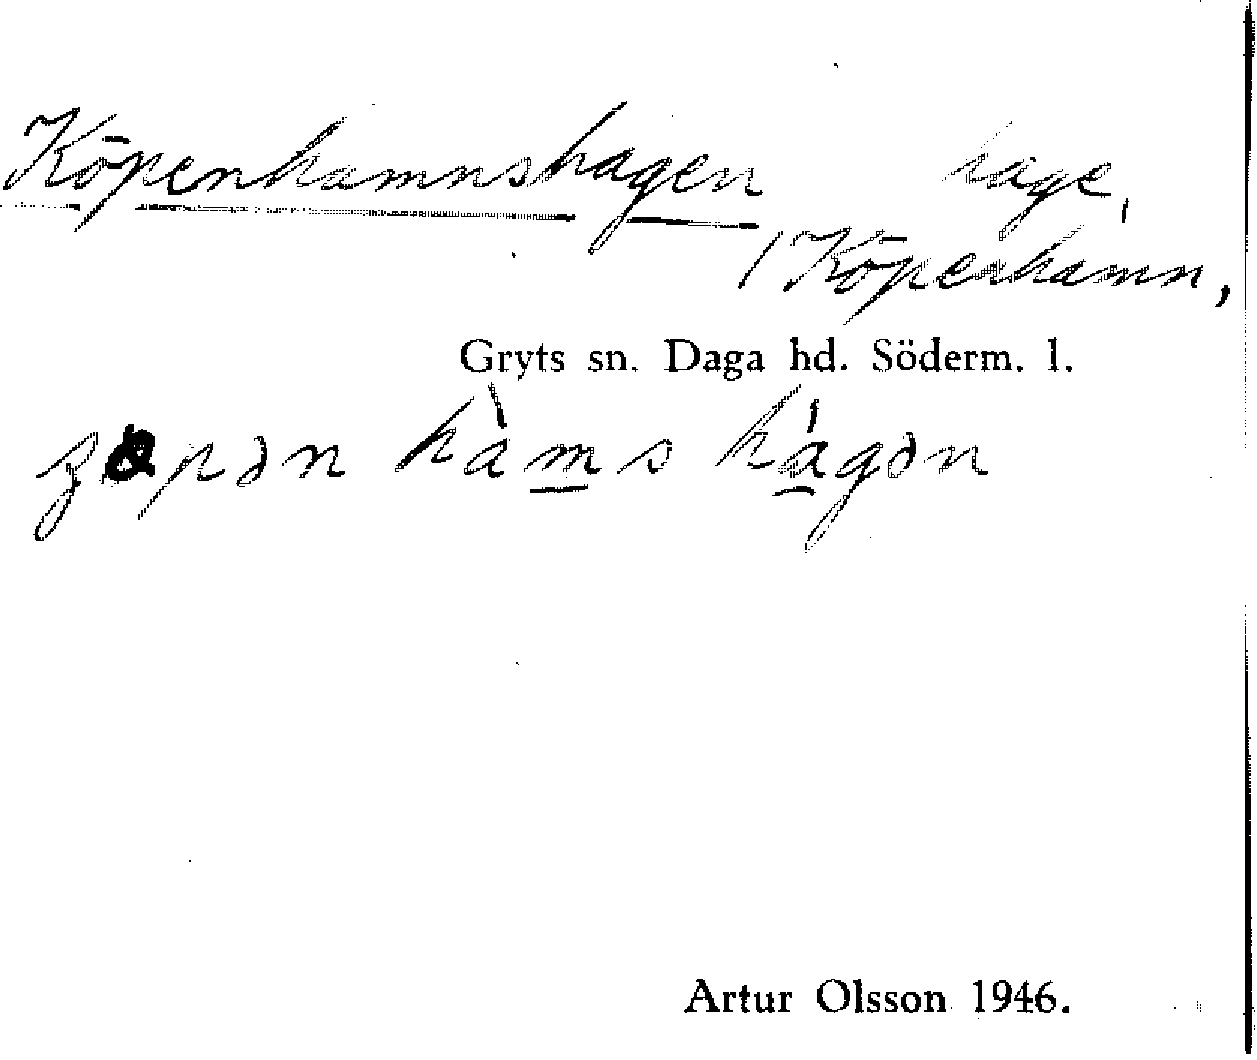 Köpenhamnshagen hage,
/ Köpenhamn,
Gryts sn. Daga hd. Söderm. l.
hàms hágən
Artur Olsson 1946.